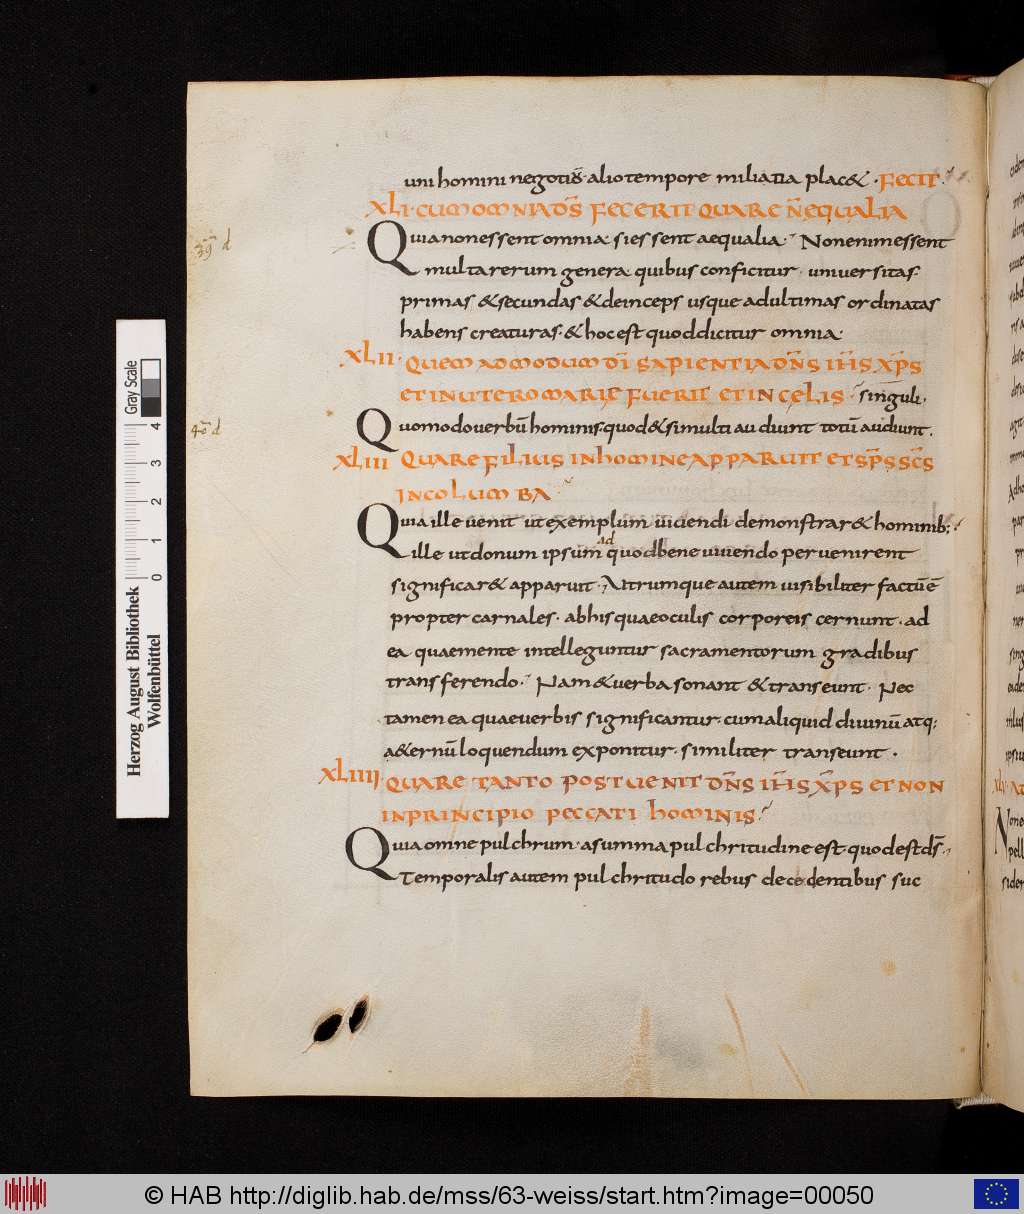 uni homini negotiū. alio tempore miliatia plac&. FECIT.
XLI. CUM OMNIA DS̄ FECERIT QUARE N̄ EQUALIA
39 d
Quia non essent omnia si essent aequalia. Non enim essent
multa rerum genera quibus conficitur. universitas
primas & secundas & deinceps usque ad ultimas ordinatas
habens creaturas. & hoc est quod dicitur omnia.
XLII. QUEMADMODUM DI̅ SAPIENTIA DN̄S IH̅S XP̅S
ET IN UTERO MARIE FUERIT ET IN CELIS singuli.
40 d
Quomodo verbū hominis. quod & si multi audiunt totū audiunt.
XLIII QUARE FILIUS IN HOMINE APPARUIT ET SP̅S SC̅S
IN COLUMBA
Quia ille uenit ut exemplum uiuendi demonstrar& hominib;
ad
ille ut donum ipsum quod bene uiuendo peruenirent
significar& apparuit. Utrumque autem uisibiliter factū ē
propter carnales. ab his quae oculis corporeis cernunt. ad
ea quae mente intelleguntur sacramentorum gradibus
transferendo. Nam & uerba sonant & transeunt. Nec
tamen ea quae uerbis significantur. cum aliquid diuinū atq;
a&ernū loquendum exponitur. similiter transeunt.
XLIIII. QUARE TANTO POST UENIT DN̄S IH̅S XP̅S ET NON
IN PRINCIPIO PECCATI HOMINIS
Quia omne pulchrum. a summa pulchritudine est. quod est ds̄.
Temporalis autem pulchritudo rebus decedentibus suc
Herzog August Bibliothek
Wolfenbüttel
0 1 2 3 4
Gray Scale
© HAB http://diglib.hab.de/mss/63-weiss/start.htm?image=00050